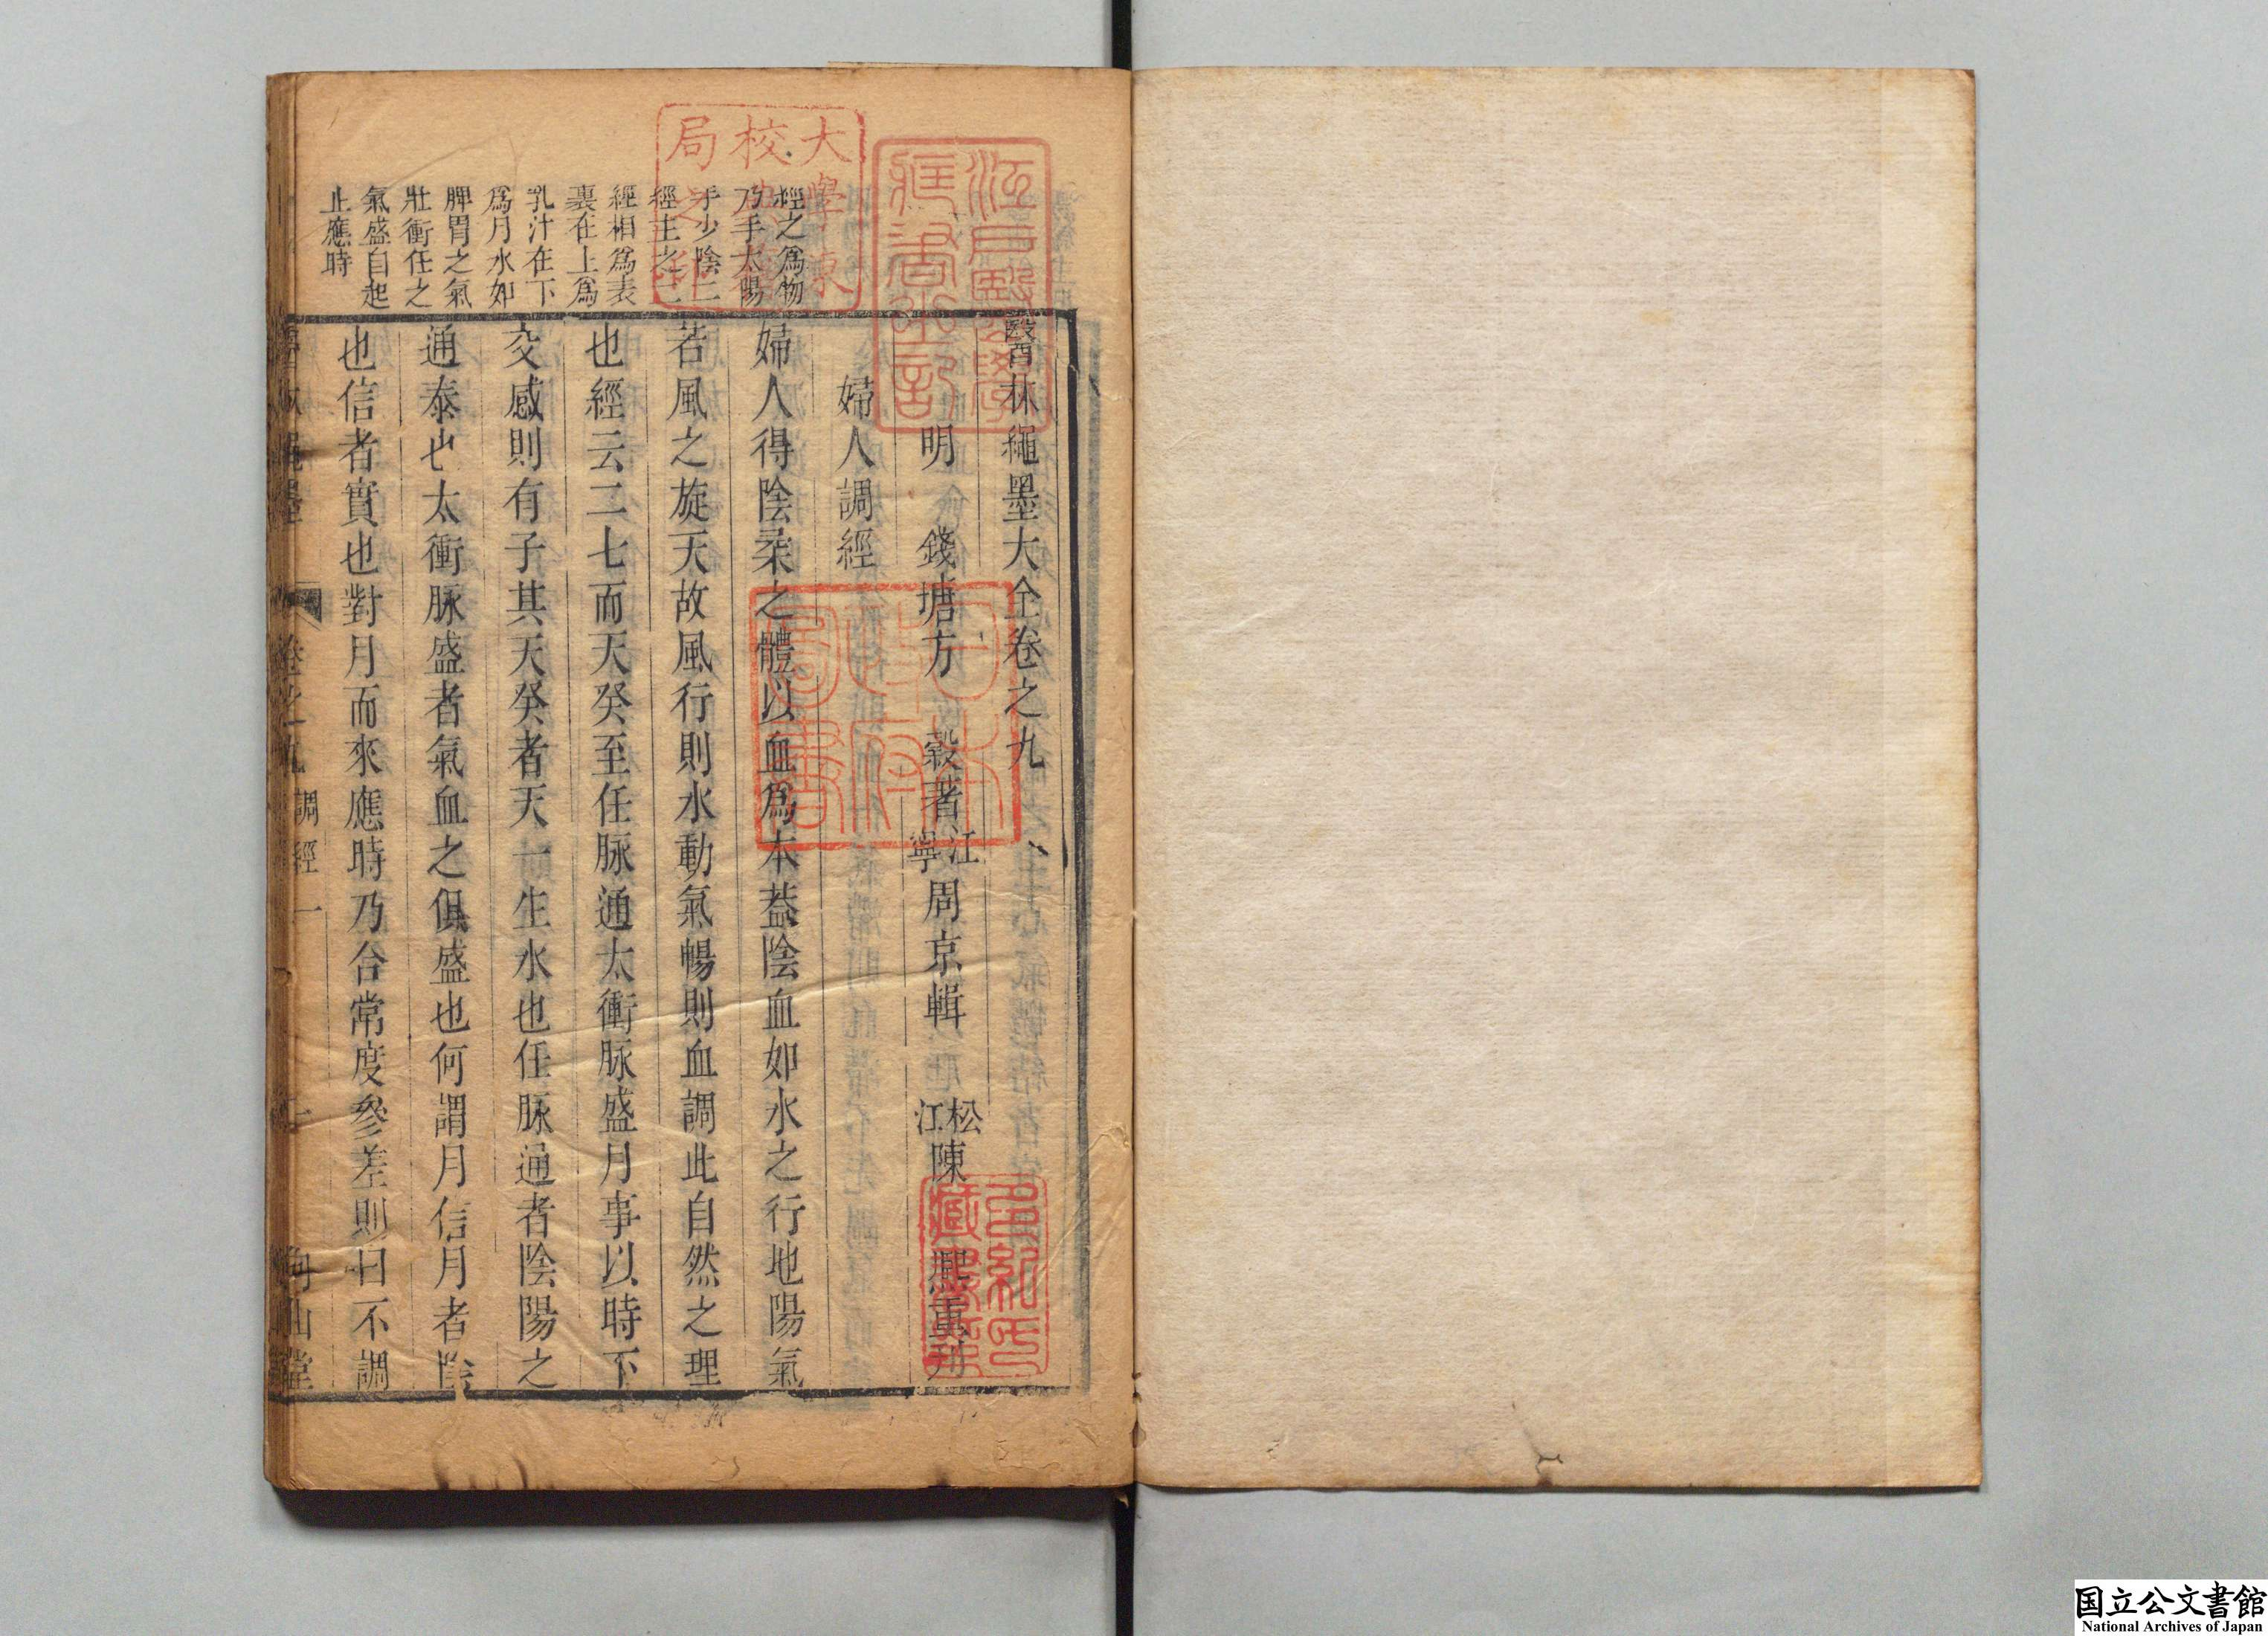 醫林繩墨大全卷之九
明 錢塘方 穀著 江寧周京輯 松江陳 熈重刋
婦人調經
婦人得陰柔之體以血爲本葢陰血如水之行地陽氣
若風之旋天故風行則水動氣暢則血調此自然之理
也經云二七而天癸至任脉通太衝脉盛月事以時下
交感則有子其天癸者天一生水也任脉通者陰陽之
通泰也太衝脉盛者氣血之俱盛也何謂月信月者陰
也信者實也對月而來應時乃合常度參差則曰不調
經之爲物
乃手太陽
手少陰二
經主之二
經相爲表
裏在上爲
乳汁在下
爲月水如
脾胃之氣
壯衝任之
氣盛自起
止應時
卷之九 調經 一
向山堂
大學東
校
局
江戸醫學
藏書之記
多紀氏
藏書印
日本
政府
圖書
国立公文書館
National Archives of Japan